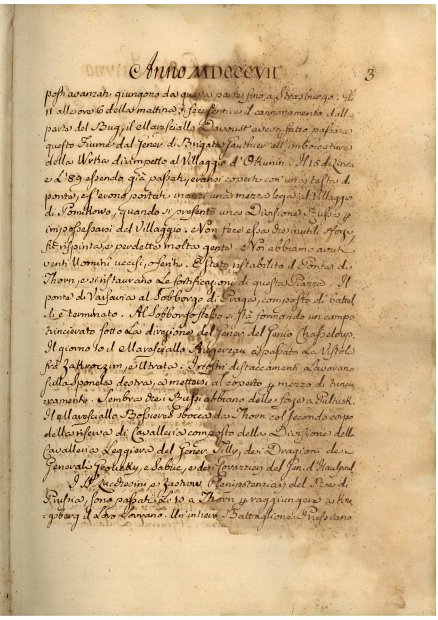 Anno MDCCCVII
3
posti avanzati giungono da questa parte fino a Strasburgo. Il
11 alle ore 6 della mattina si fece sentire il cannonamento dalla
parte del Bug, il Maresciallo Davoust aveva fatto passare
questo Fiume dal Gener di Brigata Gauthier all'imboccatura
della Wrka dirimpetto al Villaggio d'Okunin. Il 15 di Linea
e l'89 essendo già passati, eransi coperti con una testa di
ponte, e s'erono portati inanzi una mezza lega al Villaggio
di Pomikowo, quando si presentò una Divisione Russa per
impossessarsi del Villaggio. Non fece essa che inutili sforzi
fu rispinta, e perdette molta gente. Noi abbiamo avuti
venti Uomini uccisi, o feriti. È stato ristabilito il Ponte di
Thorn, e si instaurano le fortificazioni di questa Piazza. Il
ponte di Varsavia al Sobborgo di Praga, composto di battel
li è terminato. Al Sobborgo stesso si sta formando un campo
trincierato sotto la direzione del Gener del Genio Chasseloup.
Il giorno 10 il Maresciallo Augereau è passato la Vistola
fra Zakroczim, e Utrata. I nostri distaccamenti lavorano
sulla sponda destra, a mettersi al coperto per mezzo di trince
ramenti. Sembra che i Russi abbiano delle forze a Pultusk.
Il Maresciallo Bessieres sbocca da Thorn col secondo corpo
della riserva di Cavalleria composto della Divisione della
Cavalleria Leggiera del Gener Tilly, dei Dragoni dei
Generali Grouchy, e Sahuc, e dei Corazzieri del Gen d'Hautpoul.
I SS Lucchesini, e Zastrow Plenipotenziari del Re di
Prussia, sono passati li 10 a Thorn per raggiungere a Kö
nigsberg il loro Sovrano. Un intiero Battaglione Prussiano